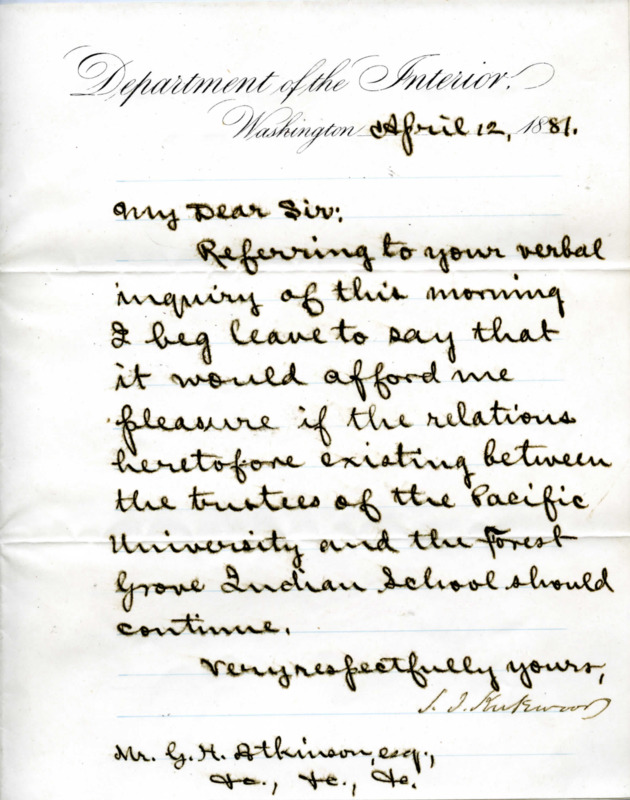 Department of the Interior.
Washington April 12, 1881.
My Dear Sir:
Referring to your verbal
inquiry of this morning
I beg leave to say that
it would afford me
pleasure if the relations
heretofore existing between
the trustees of the Pacific
University and the Forest
Grove Indian School should
continue.
Very respectfully yours,
S. J. Kirkwood
Mr. G. H. Atkinson, esq.,
&c., &c., &c.